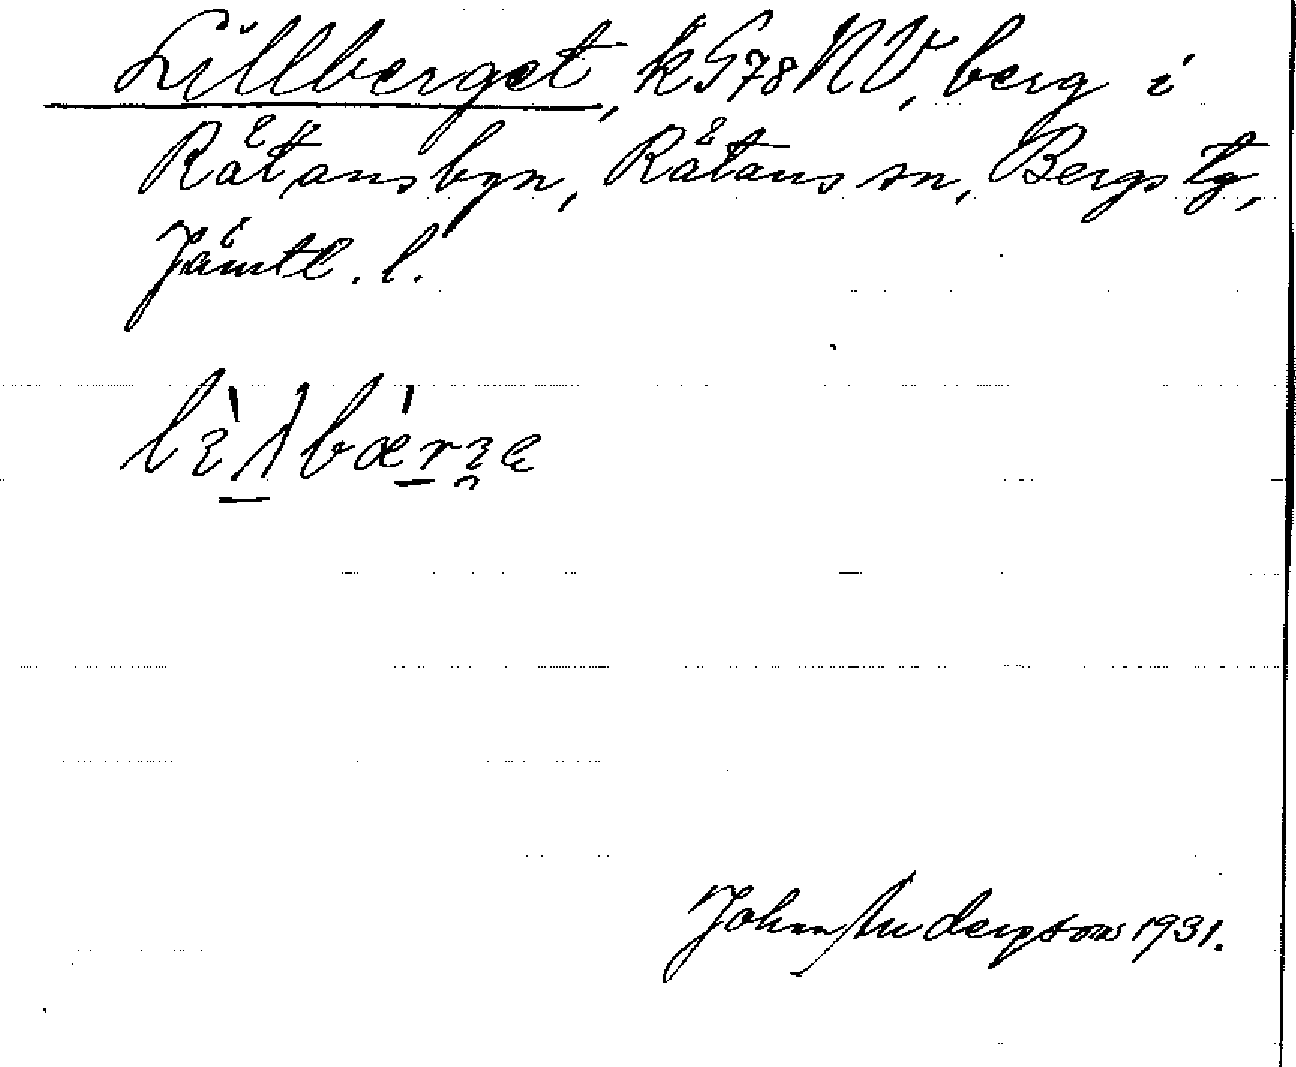 Lillberget, kG78NV, berg i
Rätansbyn, Rätans sn, Bergs tg,
Jämtl. l.
John Andersson 1931.